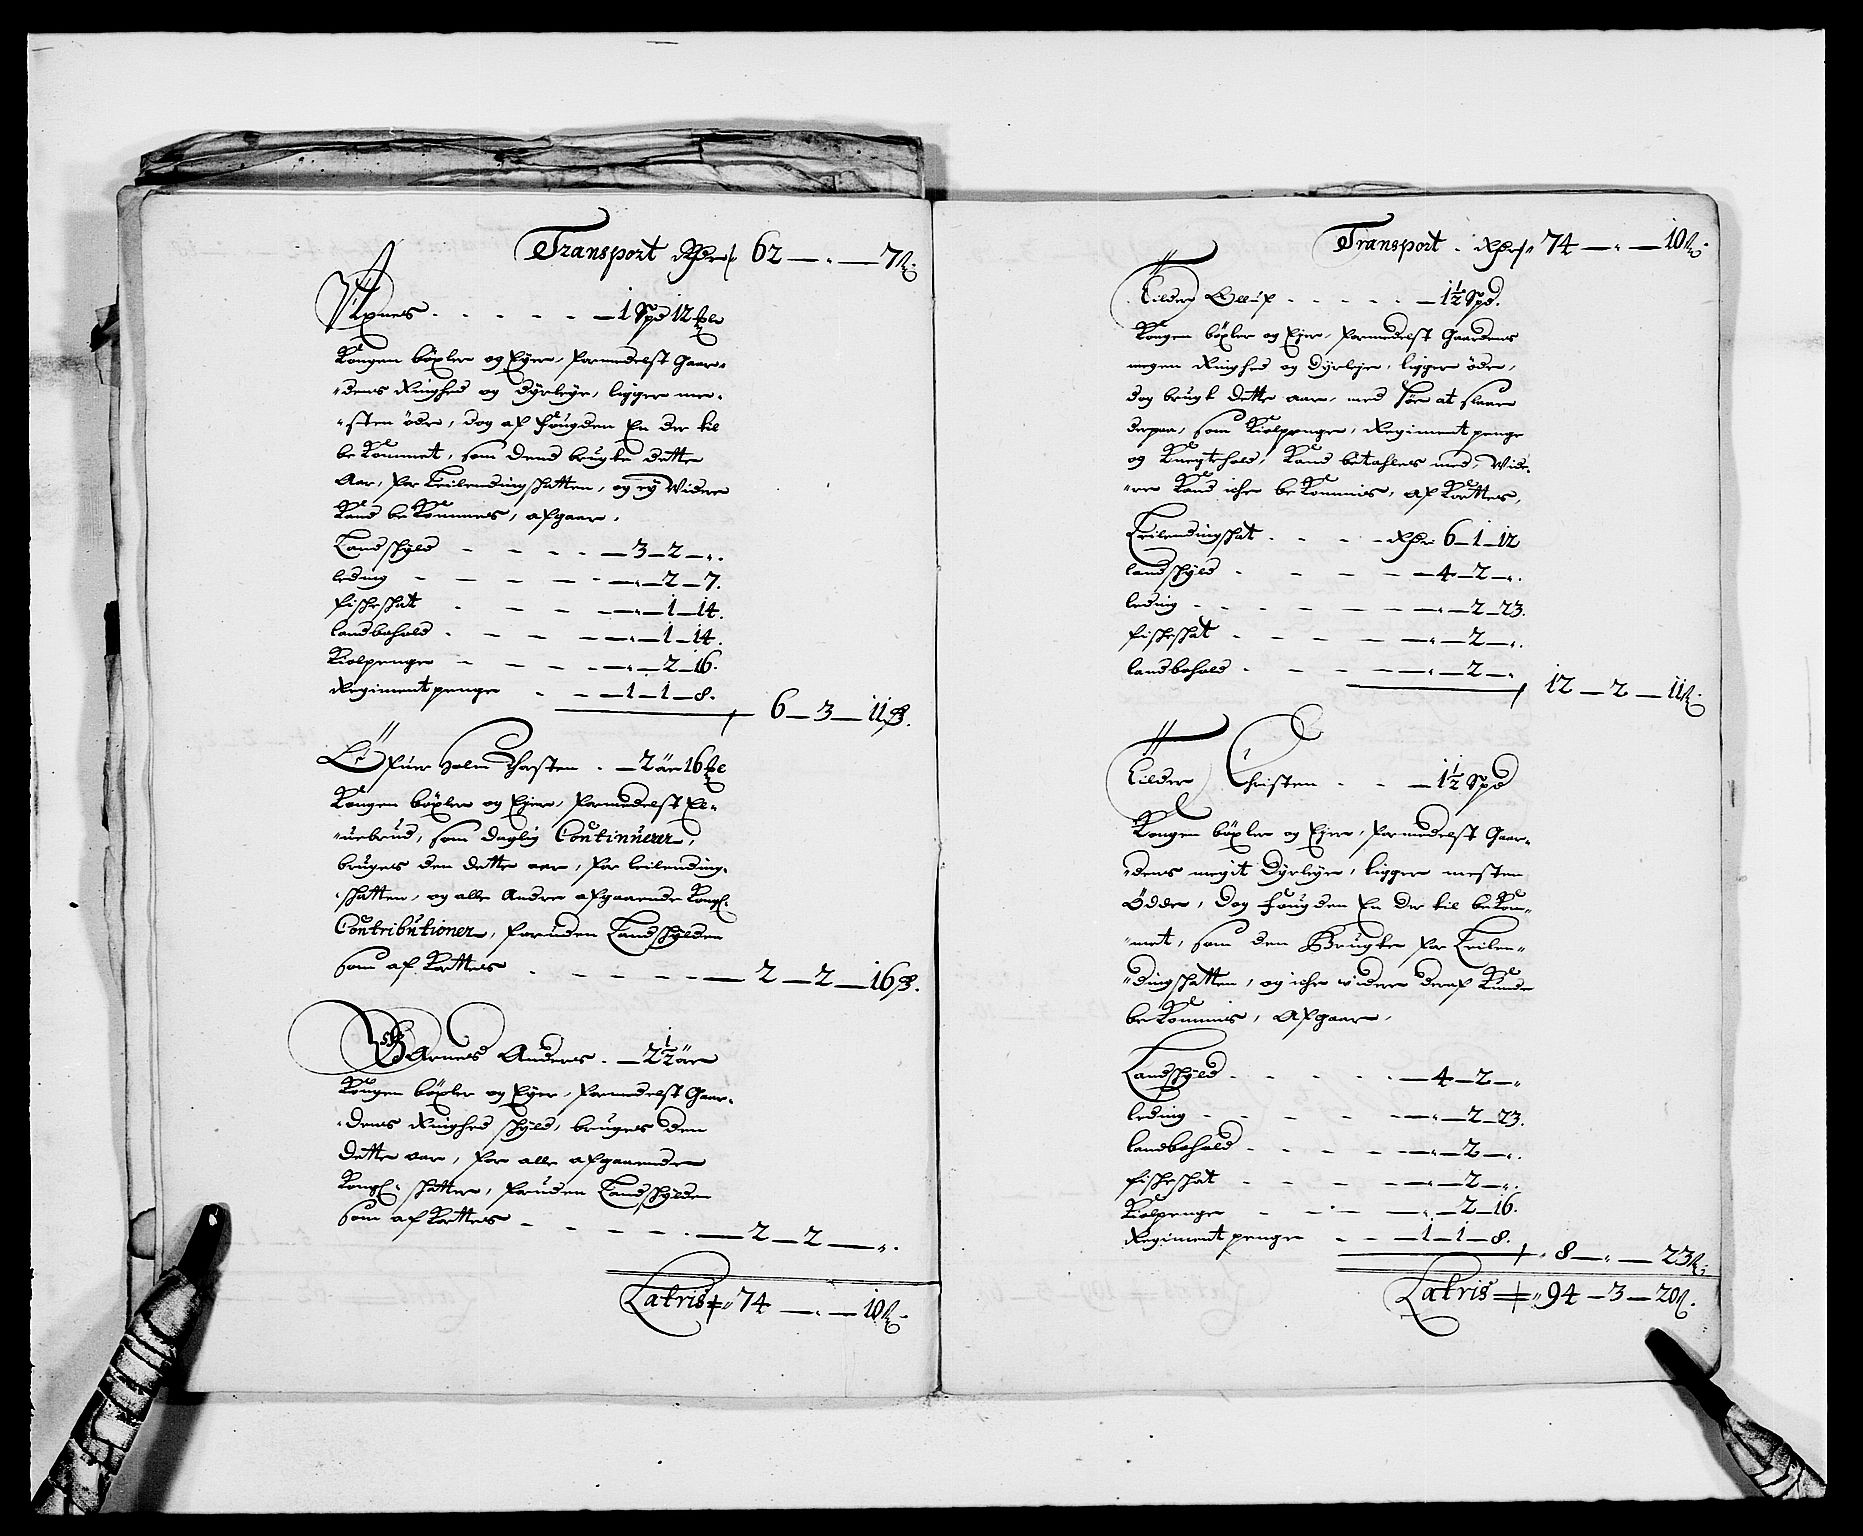 Transport Rdr 62 — " — 7 ß
Wixnes . . . . . — 1 Spd 12 Mk
Kongen böxler og Eyer, formedelst Gaar-
dens Ringhed og Dyrleye, ligger me-
sten öde, dog af Fougden En der til
bekommet, som dend brugte dette
Aar, for Leilendingschatten, og ey Widere
Kand bekommes, afgaar.
Landschyld — 3 — 2 — "
leding — " — 2 — 7.
fischeschat — " — 1 — 14.
landbohold — " — 1 — 14.
Kiolpenge — " — 2 — 16.
Regiment penge — 1 — 1 — 8.
6 — 3 — 11 ß.
Holm Thosten . — 2 öre 16 Mk
Kongen böxler og Ejer, formedelst El-
uebrud, som daglig Continuerer,
bruges den dette aar, for leilending-
schatten, og alle Andre afgaaende Kongl:
Contributioner, foruden Landschylden
som af Kortes — 2 — 2 — 16 ß.
Anders . — 2½ öre
Kongen böxler og Eyer, formedelst Gaar-
dens Ringhed schyld, bruges den
dette aar, for alle afgaaende
Kongl: schatter, foruden Landschylden
som af Kortes — 2 — 2 — "
Latris 74 — " — 10 ß
Transport . Rdr 74 — " — 10 ß.
Lilder Olluf . . . . . — 1½ Spd.
Kongen böxler og Ejer, formedelst Gaardens
megen Ringhed og Dyrleje, ligger öde,
dog brugt dette aar, med Hör at slaae
derpaa, som Kiolpenge, Regiment penge
og Knegthold, Kand betahles med, Wide-
re Kand iche bekommis, af Kortes,
Leilendingschat . . . Rdr 6 — 1 — 12
landschyld — 4 — 2 — "
leding — " — 2 — 23.
fischeschat — " — 2 — "
landbohold — " — 2 — "
12 — 2 — 11 ß
Lilder Christen . . — 1½ Spd
Kongen böxler og Ejer, formedelst Gaar-
dens megit Dyrleye, ligger mesten
Ödde, Dog Fougden En der til bekom-
met, som den Brugte for Leilen-
dingschatten, og iche videre deraf Kunde
bekommis, Afgaar,
Landschyld — 4 — 2 — "
leding — " — 2 — 23.
landbohold — " — 2 — "
fischeschat — " — 2 — "
Kiolpenge — " — 2 — 16.
Regiment penge — 1 — 1 — 8.
8 — " — 23 ß.
Latris 94 — 3 — 20 ß.